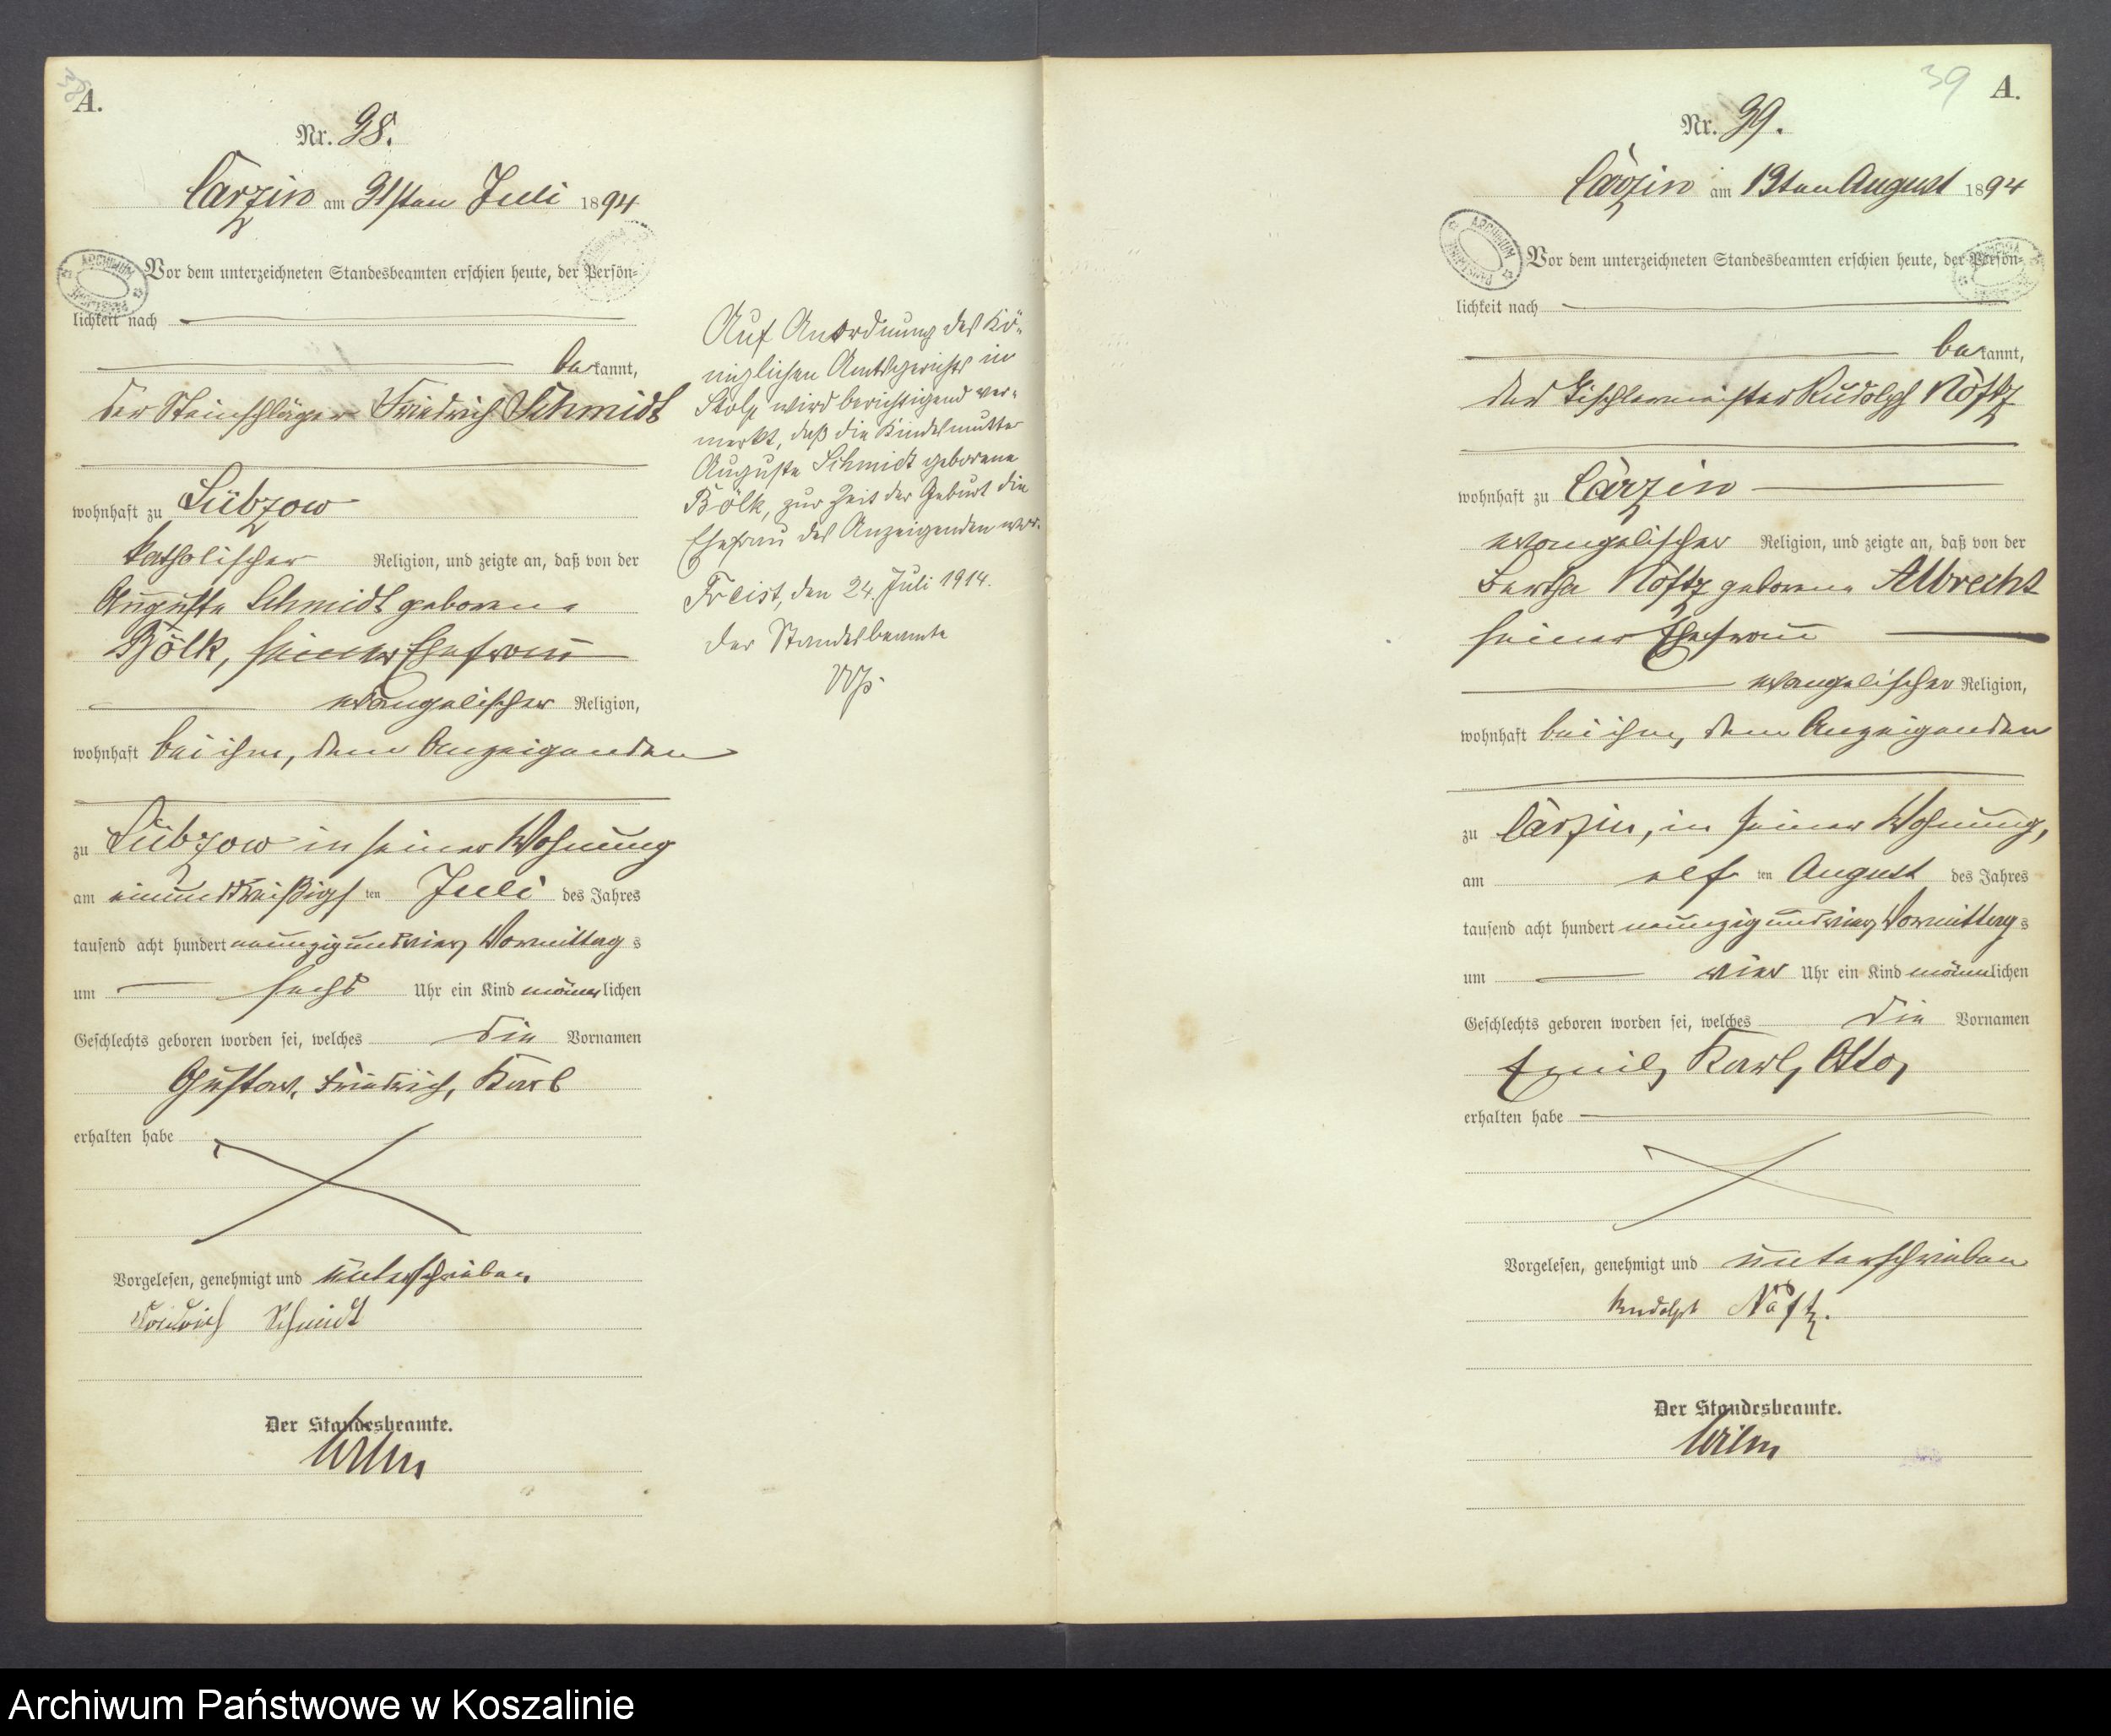 38
A.
Nr. 38.
Carzin am 31sten Juli 1894
Vor dem unterzeichneten Standesbeamten erschien heute, der Persön=
lichkeit nach
bekannt,
der Steinschläger Friedrich Schmidt
wohnhaft zu Lübzow
katholischer Religion, und zeigte an, daß von der
Auguste Schmidt geborene
Bölk, seiner Ehefrau
evangelischer Religion,
wohnhaft bei ihm, dem Anzeigenden
zu Lübzow in seiner Wohnung
am einunddreißigsten Juli des Jahres
tausend acht hundert neunzig und vier, Vormittags
um sechs Uhr ein Kind männlichen
Geschlechts geboren worden sei, welches die Vornamen
Gustav, Friedrich, Karl
erhalten habe
Vorgelesen, genehmigt und unterschrieben
Friedrich Schmidt
Der Standesbeamte.
Wilm
Auf Anordnung des Kö=
niglichen Amtsgerichts in
Stolp wird berichtigend ver=
merkt, daß die Kindesmutter
Auguste Schmidt geborene
Bölk, zur Zeit der Geburt die
Ehefrau des Anzeigenden war.
Freist, den 24. Juli 1914.
Der Standesbeamte
39
A.
Nr. 39.
Carzin am 13ten August 1894
Vor dem unterzeichneten Standesbeamten erschien heute, der Persön=
lichkeit nach
bekannt,
der Tischlermeister Rudolph Nöftz
wohnhaft zu Carzin
evangelischer Religion, und zeigte an, daß von der
Bertha Nöftz geborene Albrecht
seiner Ehefrau
evangelischer Religion,
wohnhaft bei ihm, dem Anzeigenden
zu Carzin, in seiner Wohnung,
am elften August des Jahres
tausend acht hundert neunzig und vier, Vormittags
um vier Uhr ein Kind männlichen
Geschlechts geboren worden sei, welches die Vornamen
Emil, Karl, Otto,
erhalten habe
Vorgelesen, genehmigt und unterschrieben
Rudolph Nöftz.
Der Standesbeamte.
Wilm
Archiwum Państwowe w Koszalinie